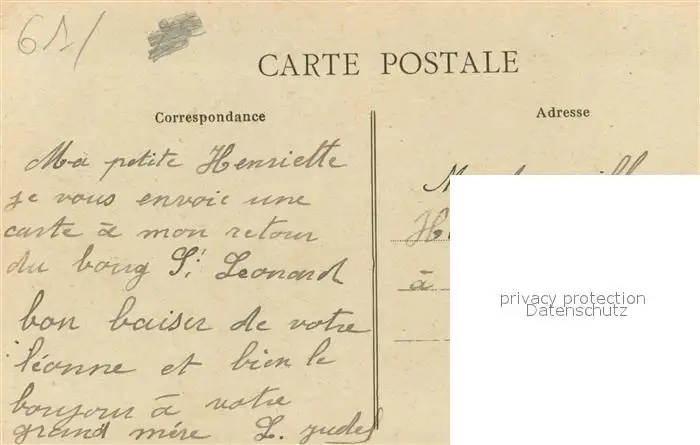 61/
CARTE POSTALE
Correspondance
Ma petite Henriette
je vous envoie une
carte à mon retour
du bourg St Leonard
bon baiser de votre
léonne et bien le
boujour à votre
grand mére L. judel
Adresse
à
privacy protection
Datenschutz